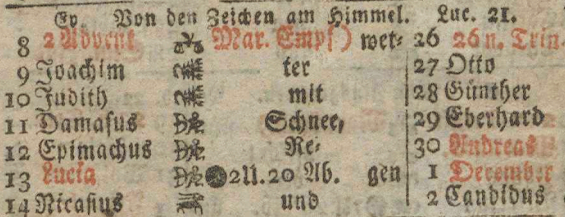 Ev. Von den Zeichen am Himmel. Luc. 21.
8 2 Advent Mar. Empf) wet- 26 26 n. Trin.
9 Joachim ter 27 Otto
10 Judith mit 28 Günther
11 Damasus Schnee, 29 Eberhard
12 Epimachus Re- 30 Andreas
13 Lucia 2U.20 Ab. gen 1 December
14 Nicasius und 2 Candidus